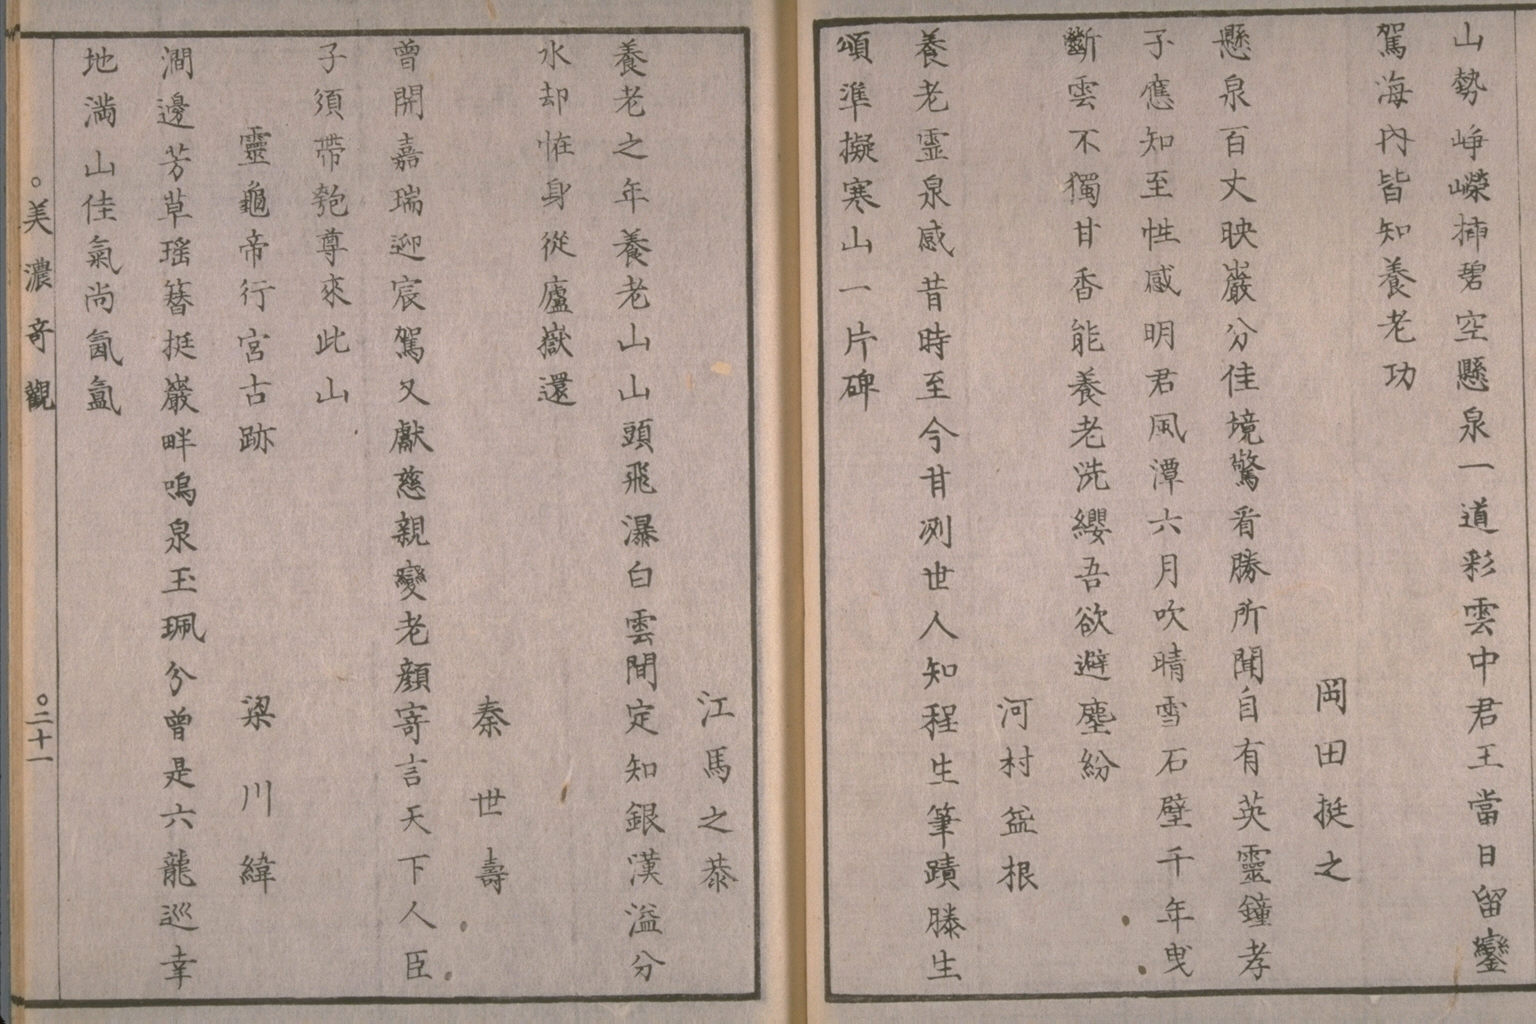 山勢崢嶸挿碧空懸泉一道彩雲中君王當日留鑾
駕海内皆知養老功
岡田挺之
懸泉百丈映巖分佳境驚看勝所聞自有英靈鐘孝
子應知至性感明君風潭六月吹晴雪石壁千年曳
斷雲不獨甘香能養老洗纓吾欲避塵紛
河村益根
養老霊泉感昔時至今甘冽世人知程生筆蹟滕生
頌準擬寒山一片碑
江馬之恭
養老之年養老山山頭飛瀑白雲間定知銀漢溢分
水却恠身從廬嶽還
秦世壽
曽開嘉瑞迎宸駕又獻慈親變老顔寄言天下人臣
子須帶匏尊來此山
靈龜帝行宮古跡
梁川緯
澗邊芳草瑶簪挺巖畔鳴泉玉珮分曽是六龍巡幸
地満山佳氣尚氤氳
○美濃奇觀
○二十一